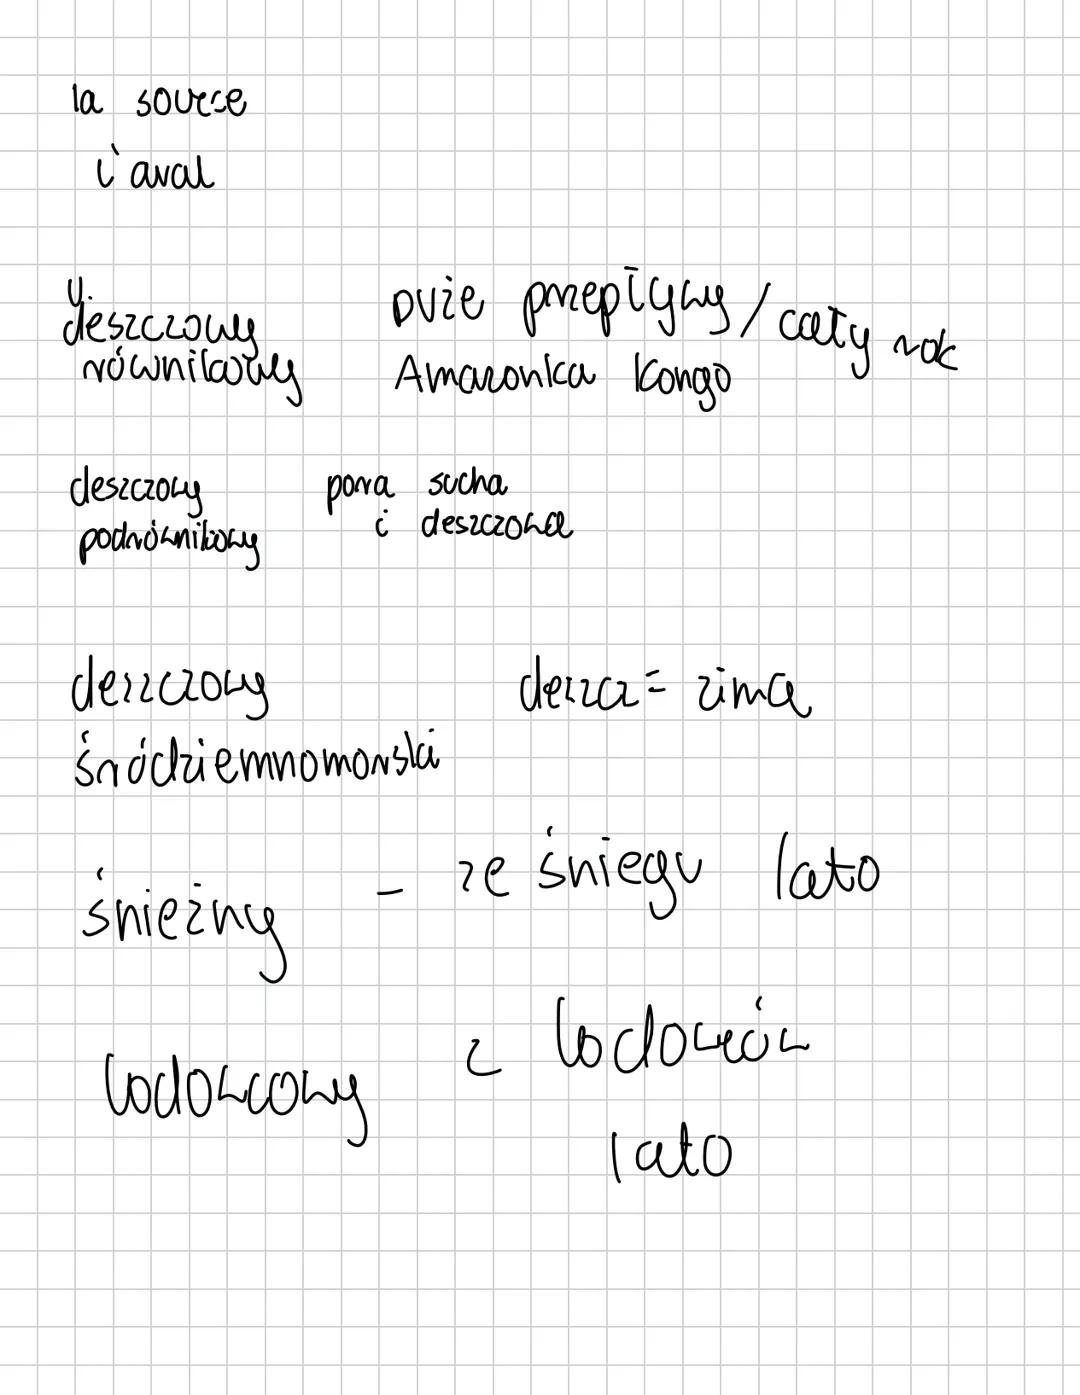 la source
l'aval
deszczowy
równikowy
Duże przepływy / cały rok
Amazonka Kongo
deszczowy
podrównikowy
pora sucha
i deszczowa
deszczowy
śródziemnomorski
deszcz = zima
śnieżny - ze śniegu lato
lodowcowy z lodowców
lato